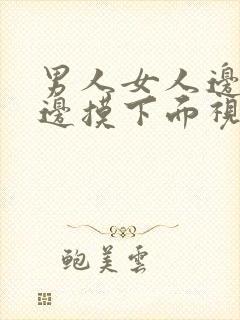 男人女人邊
邊摸下而視
鲍美雲